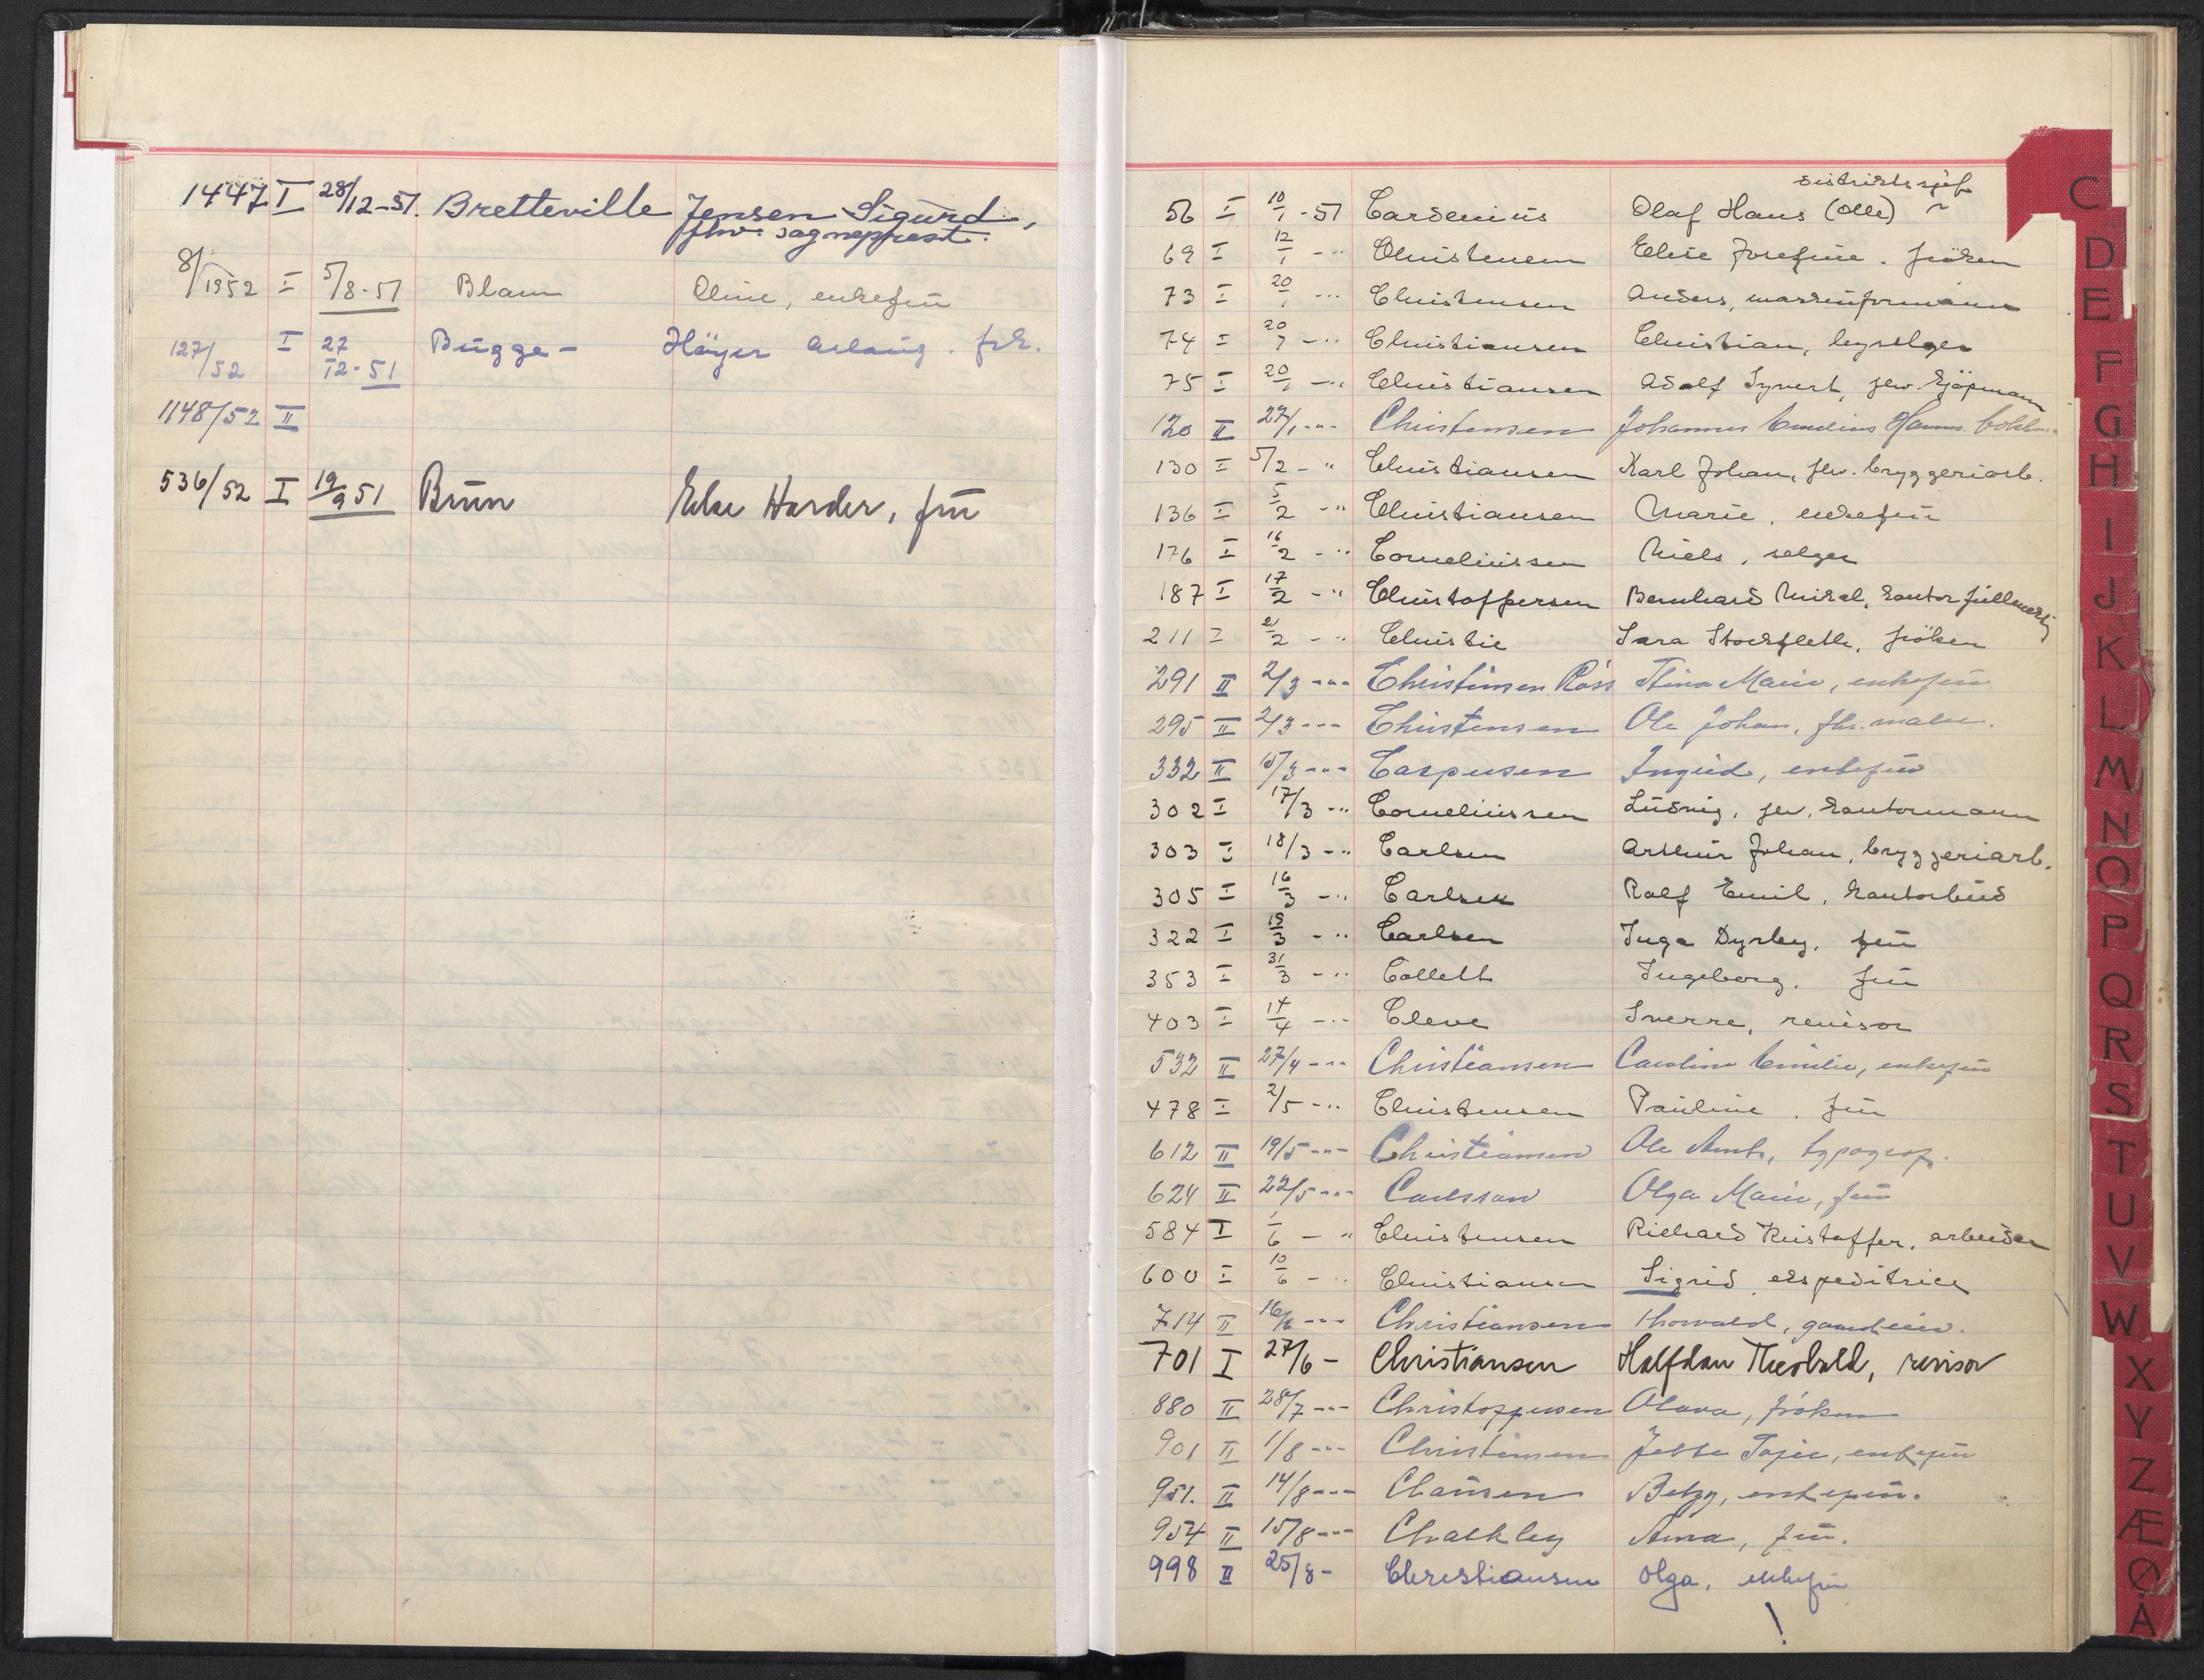 1447 I 28/12-51. Bretteville Jensen Sigurd,
fhv. sogneprest.
8/1952 I 5/8-51 Blam Oline, enkefru
127/52 I 27/12-51 Bugge - Höyer Aslaug. frk.
1148/52 II
536/52 I 19/9 51 Brun Else Harder, fru
distriktssjef
56 I 10/1-51 Cardenius Olaf Hans (Olle)
69 I 12/1 -" Christensen Elise Josefine. fröken
73 I 20/1 -" Christensen Anders, maskinformann
74 I 20/1 -" Christiansen Christian,
75 I 20/1 -" Christiansen Adolf Syvert, fhv. kjöpmann
120 II 27/1 -"- Christensen Johannes Emelius
130 I 5/2 -" Christiansen Karl Johan, fhv. bryggeriarb.
136 I 5/2 -" Christiansen Marie, enkefru
176 I 16/2 -" Corneliussen Niels, selger
187 I 17/2 -" Christoffersen Bernhard Mikal, kontorfullmektig
211 I 21/2 -" Christie Sara Stockfleth, fröken
291 II 2/3 -"- Christensen Ross Stina Marie, enkefru
295 II 2/3 -"- Christensen Ole Johan, fhv. maler.
332 II 15/3 -"- Caspersen Ingrid, enkefru
302 I 17/3 -" Corneliussen Ludvig, fhv. kontormann
303 I 18/3 -" Carlsen Arthur Johan, bryggeriarb.
305 I 16/3 -" Carlsen Rolf Emil, kontorbud
322 I 19/3 -" Carlsen Inga Dyrley, fru
353 I 31/3 -" Collett Ingeborg, fru
403 I 14/4 -" Cleve Sverre, revisor
532 II 27/4 -"- Christiansen Caroline Emilie, enkefru
478 I 2/5 -" Christensen Pauline, fru
612 II 19/5 -"- Christiansen Ole Amb., typogr.
624 II 22/5 -"- Carlsson Olga Marie, fru
584 I 1/6 - " Christensen Richard Kristoffer, arbeider
600 I 10/6 - " Christiansen Sigrid, ekspeditrice
714 II 16/6 -"- Christiansen Thorvald, gaardeier.
701 I 27/6 - Christiansen Halfdan Theobald, revisor
880 II 28/7 -"- Christoffersen Olava, fröken
901 II 1/8 -"- Christensen Jette enkefru
951. II 14/8 -"- Clausen Betzy, enkefru.
954 II 15/8 -"- Chalkley Anna, fru.
998 II 25/8 - Christiansen Olga, enkefru
C
D
E
F
G
H
I
J
K
L
M
N
O
P
Q
R
S
T
U
V
W
X
Y
Z
Æ
Ø
Å